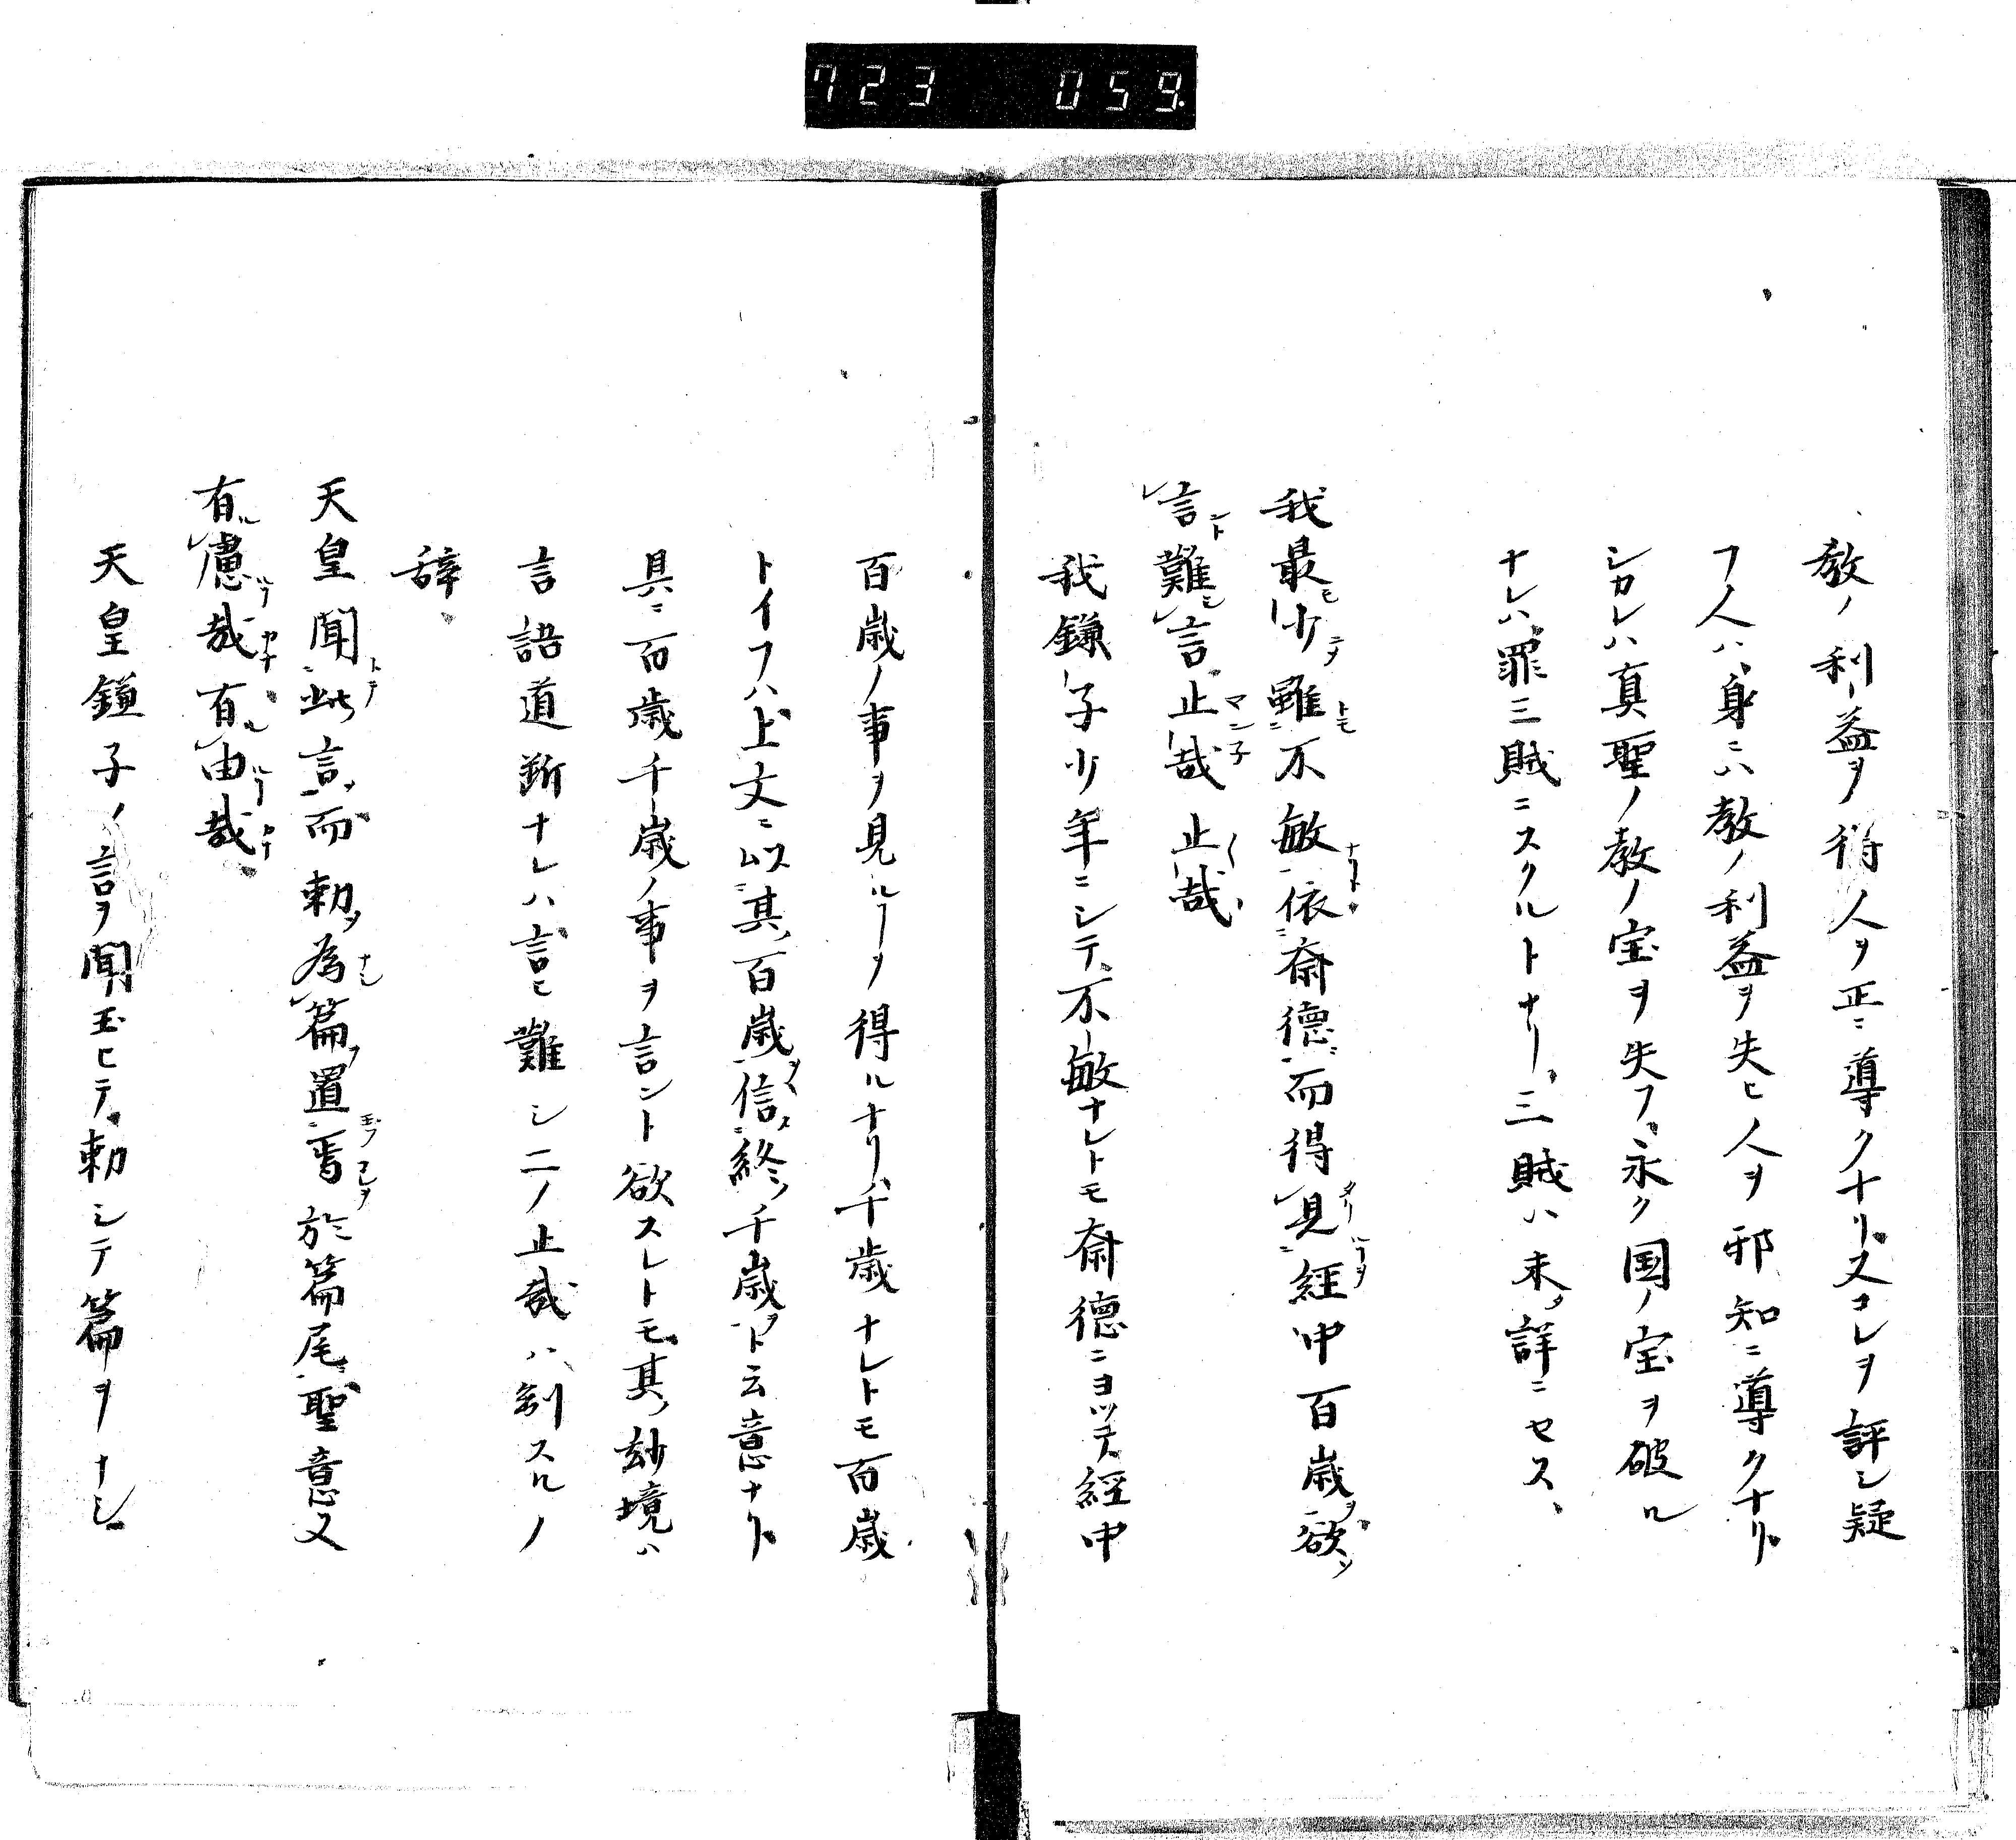 723 059
教ノ利益ヲ得人ヲ正ニ導クナリ又コレヲ評シ疑
フ人ハ身ニハ教ノ利益ヲ失ヒ人ヲ邪知ニ導クナリ
シカレハ真聖ノ教ノ宝ヲ失フ永ク国ノ宝ヲ破ル
ナレハ罪三賊ニスクルトナリ三賊ハ未タ詳ニセス
我最少雖不敏依斎徳而得見経中百歳欲
言難言止哉止哉
我鎌子少年ニシテ不敏ナレトモ斎徳ニヨツテ経中
百歳ノ事ヲ見ルヿヲ得ルナリ千歳ナレトモ百歳
トイフハ上文ニ以其百歳信終千歳ト云意ナリ
具ニ百歳千歳ノ事ヲ言ント欲スレトモ其妙境ハ
言語道断ナレハ言ヒ難シ二ノ止哉ハ制スルノ
辞
天皇聞此言而勅為篇置焉於篇尾聖意又
有慮哉有由哉
天皇鎌子ノ言ヲ聞玉ヒテ勅シテ篇ヲナシ